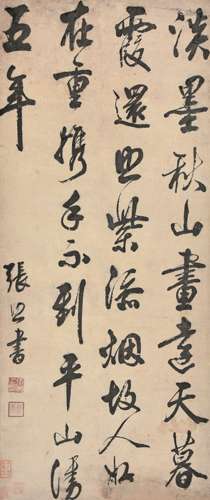 淡墨秋山畫遠天暮
霞還照紫添烟故人好
在重攜手不到平山謾
五年
張照書